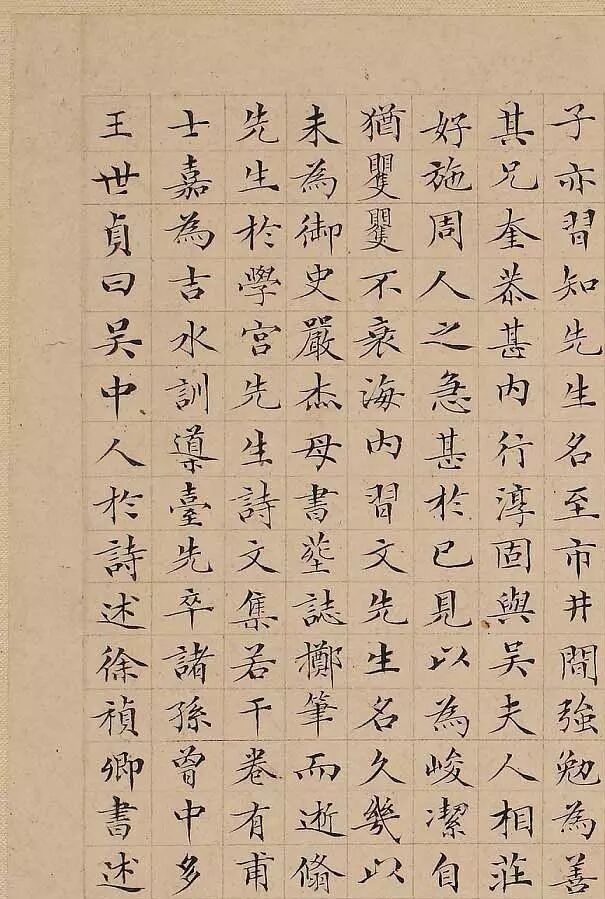 子亦習知先生名至市井間強勉為善
其兄奎恭甚內行淳固與吳夫人相莊
好施周人之急甚於已見以為峻潔自
猶矍矍不衰海內習文先生名久幾以
未為御史嚴杰母書塟誌擲筆而逝翛
先生於學宮先生詩文集若干卷有甫
士嘉為吉水訓導臺先卒諸孫曾中多
王世貞曰吳中人於詩述徐禎卿書述